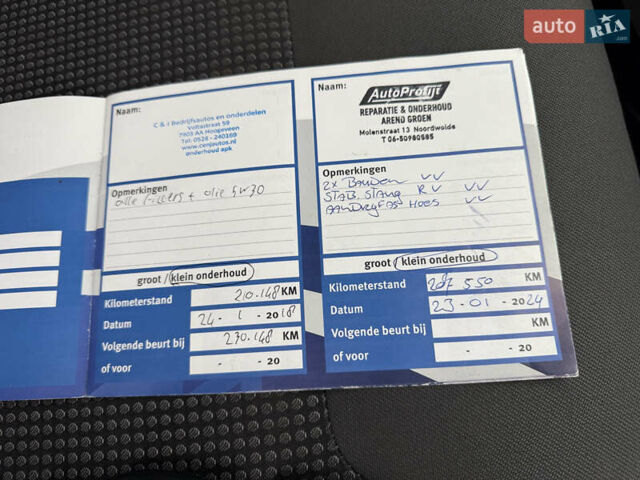 auto RIA .com
Naam:
C & J Bedrijfsautos en onderdelen
Voltastraat 59
7903 AA Hoogeveen
Tel: 0528 - 240169
www.cenjautos.nl
onderhoud apk
Opmerkingen
alle filters + olie 5W30
groot / klein onderhoud
Kilometerstand 210.148 KM
Datum 24 - 1 - 2018
Volgende beurt bij 230.148 KM
of voor - - 20
Naam:
AutoProfijt
REPARATIE & ONDERHOUD
AREND GROEN
Molenstraat 13 Noordwolde
T 06-50980585
Opmerkingen
2x Banden VV
STAB. STANG RV VV
AANDRIJFAS HOES VV
groot / klein onderhoud
Kilometerstand 287 550 KM
Datum 23 - 01 - 2024
Volgende beurt bij KM
of voor - - 20